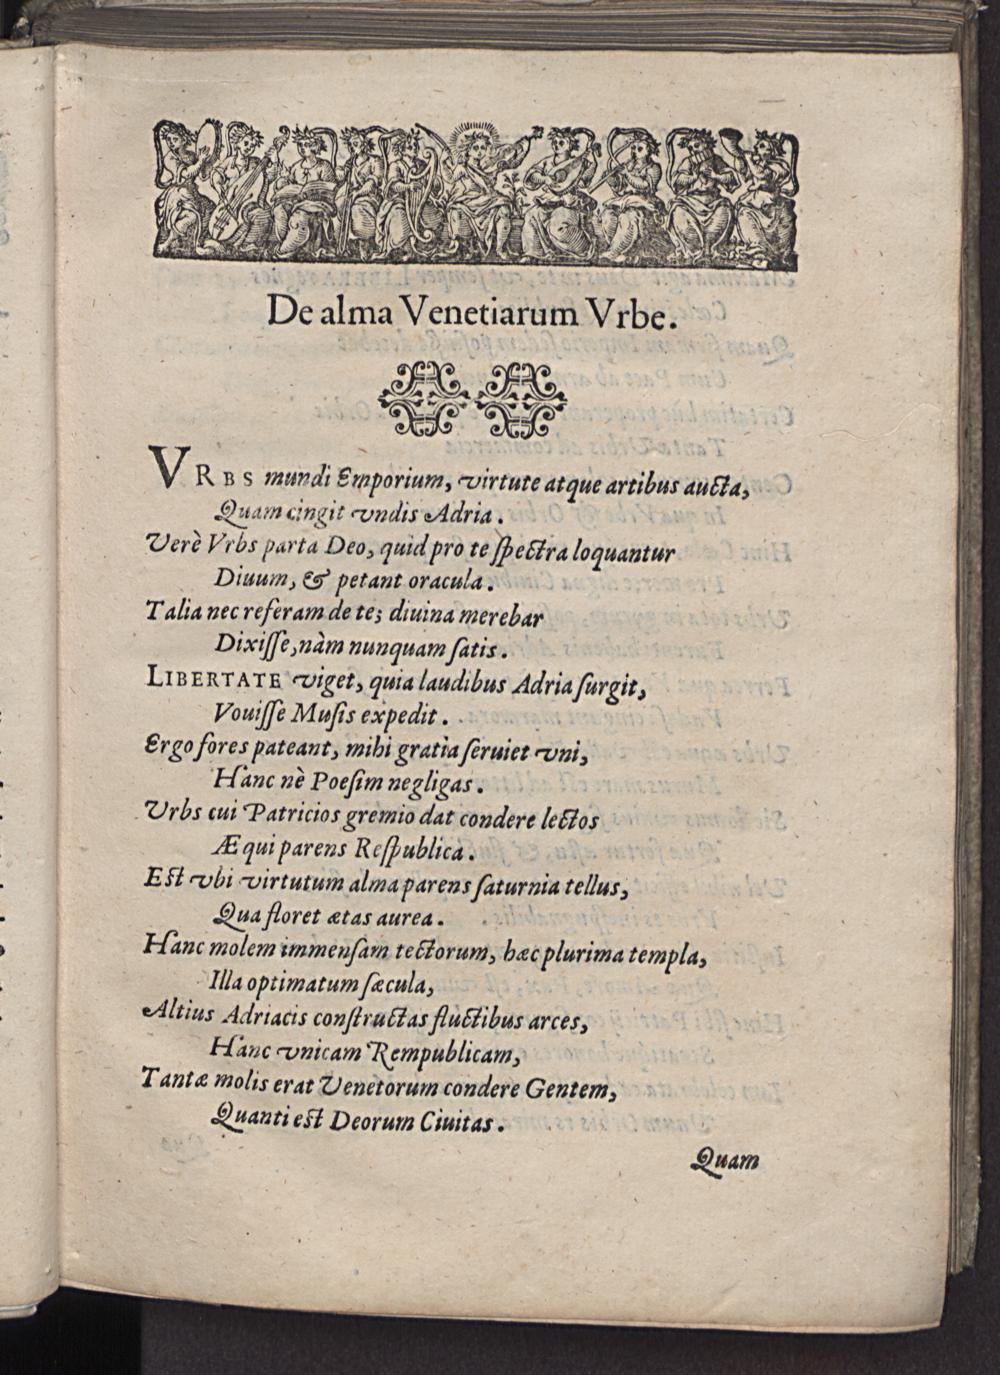 De alma Venetiarum Vrbe.
VRBS mundi Emporium, virtute atque artibus aucta,
Quam cingit vndis Adria.
Verè Vrbs parta Deo, quid pro te spectra loquantur
Diuum, & petant oracula.
Talia nec referam de te; diuina merebar
Dixisse, nàm nunquam satis.
LIBERTATE viget, quia laudibus Adria surgit,
Vouisse Musis expedit.
Ergo fores pateant, mihi gratia seruiet vni,
Hanc nè Poesim negligas.
Vrbs cui Patricios gremio dat condere lectos
Æqui parens Respublica.
Est vbi virtutum alma parens saturnia tellus,
Qua floret ætas aurea.
Hanc molem immensam tectorum, hæc plurima templa,
Illa optimatum sæcula,
Altius Adriacis constructas fluctibus arces,
Hanc vnicam Rempublicam,
Tantæ molis erat Venetorum condere Gentem,
Quanti est Deorum Ciuitas.
Quam